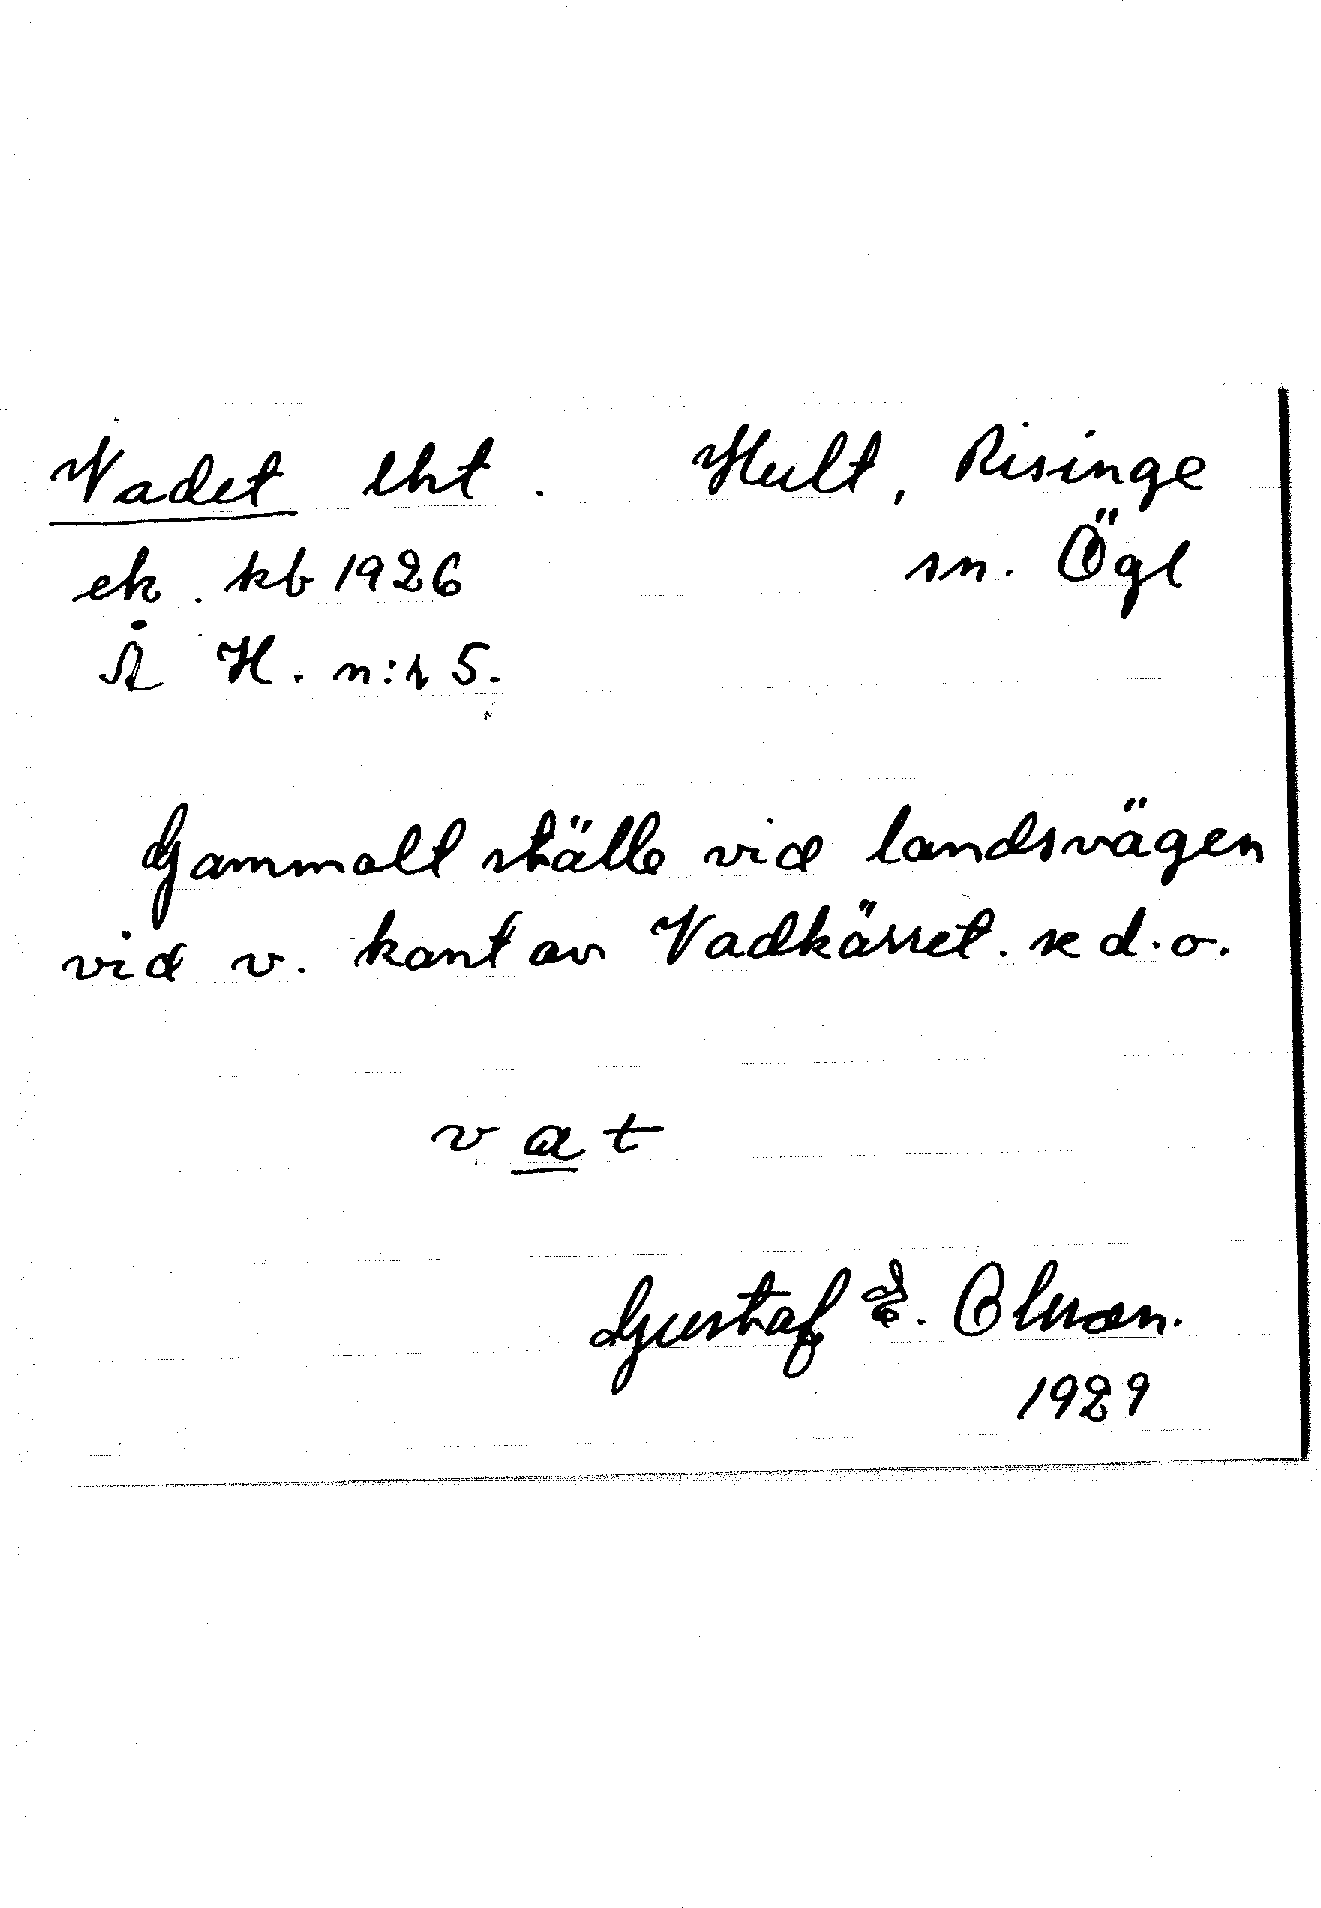 Vadet lht. Hult, Risinge
ek. kb 1926 sn. Ögl
Å H. n:r 5.
Gammalt ställe vid landsvägen
vid v. kant av Vadkärret. se d.o.
v a t
Gustaf E. Olsson.
1929